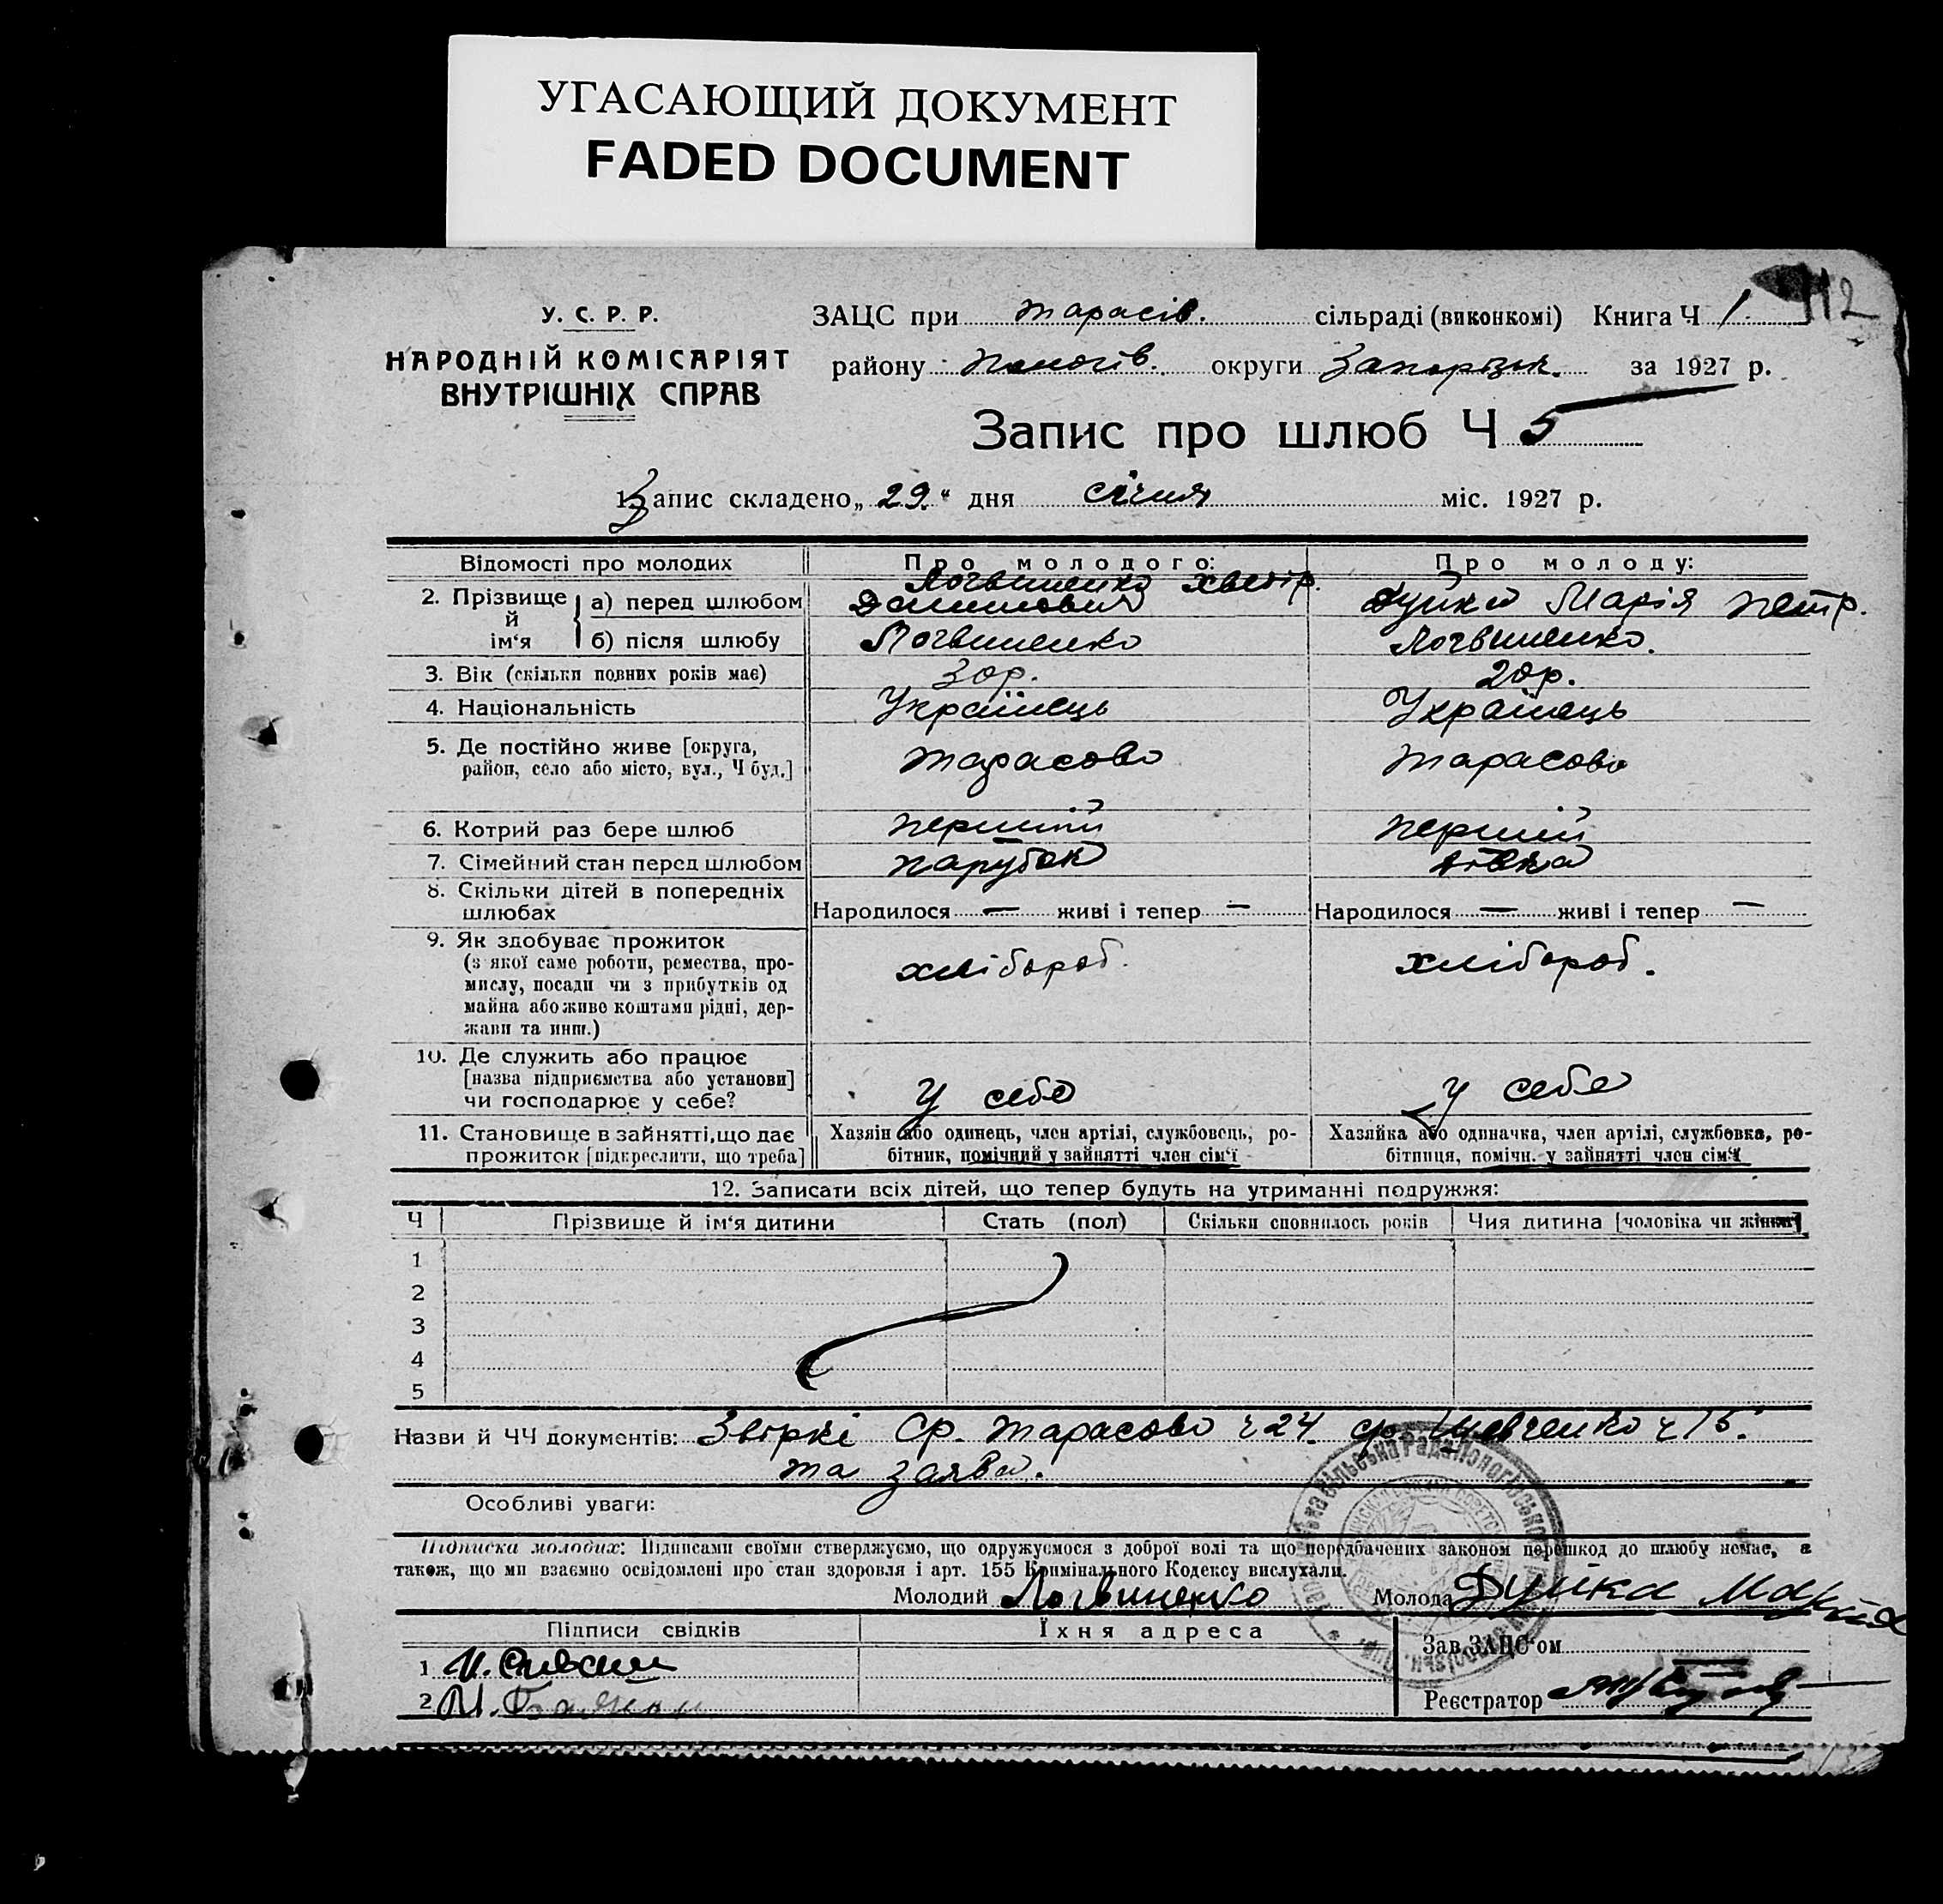 УГАСАЮЩИЙ ДОКУМЕНТ
FADED DOCUMENT
112
У. С. Р. Р.
НАРОДНІЙ КОМІСАРІЯТ
ВНУТРІШНІХ СПРАВ
ЗАЦС при Тарасів. сільраді (виконкомі) Книга Ч 1.
району Пологів. округи Запорізьк. за 1927 р.
Запис про шлюб Ч 5
1. Запис складено „29.“ дня січня міс. 1927 р.
Відомості про молодих Про молодого: Про молоду:
2. Прізвище й ім‘я
а) перед шлюбом Логвиненко Хведір Данилович Дуйка Марія Петр.
б) після шлюбу Логвиненко Логвиненко.
3. Вік (скільки повних років має) 30р. 20р.
4. Національність Українець Українець
5. Де постійно живе [округа, Тарасово Тарасово
район, село або місто, вул., Ч буд.]
6. Котрий раз бере шлюб перший перший
7. Сімейний стан перед шлюбом парубок дівка
8. Скільки дітей в попередніх
шлюбах Народилося — живі і тепер — Народилося — живі і тепер —
9. Як здобуває прожиток
(з якої саме роботи, ремества, про- хлібороб. хлібороб.
мислу, посади чи з прибутків од
майна або живе коштами рідні, дер-
жави та инш.)
10. Де служить або працює
[назва підприємства або установи] У себе У себе
чи господарює у себе?
11. Становище в зайнятті, що дає Хазяїн або одинець, член артілі, службовець, ро- Хазяйка або одиначка, член артілі, службовка, ро-
прожиток [підкреслити, що треба] бітник, помічний у зайнятті член сім‘ї бітниця, помічн. у зайнятті член сім‘ї
12. Записати всіх дітей, що тепер будуть на утриманні подружжя:
Ч Прізвище й ім‘я дитини Стать (пол) Скільки сповнилось років Чия дитина [чоловіка чи жінки]
1
2
3
4
5
Назви й ЧЧ документів: Звіркі Ср. Тарасово ч 24. ср. Шевченко ч 15.
та заява.
Особливі уваги:
Підписка молодих: Підписами своїми стверджуємо, що одружуємося з доброї волі та що передбачених законом перешкод до шлюбу немає, а
також, що ми взаємно освідомлені про стан здоровля і арт. 155 Кримінального Кодексу вислухали.
Молодий Логвиненко Молода Дуйка Мария
Підписи свідків Їхня адреса Зав. ЗАЦС‘ом
1
2 Реєстратор